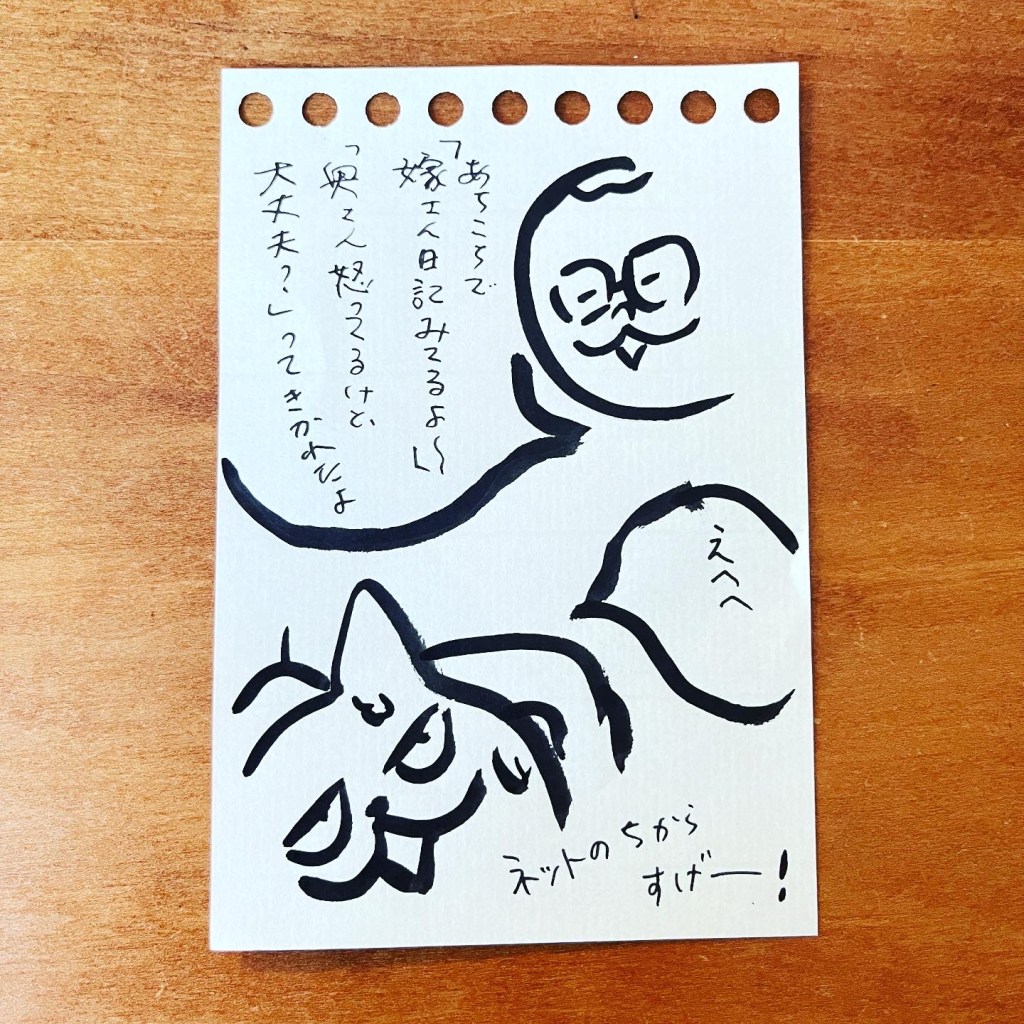 あちこちで
「嫁エ人日記みてるよ〜」
「奥さん怒ってるけど、
大丈夫?」ってきかれたよ
えへへ
ネットのちから
すげー!